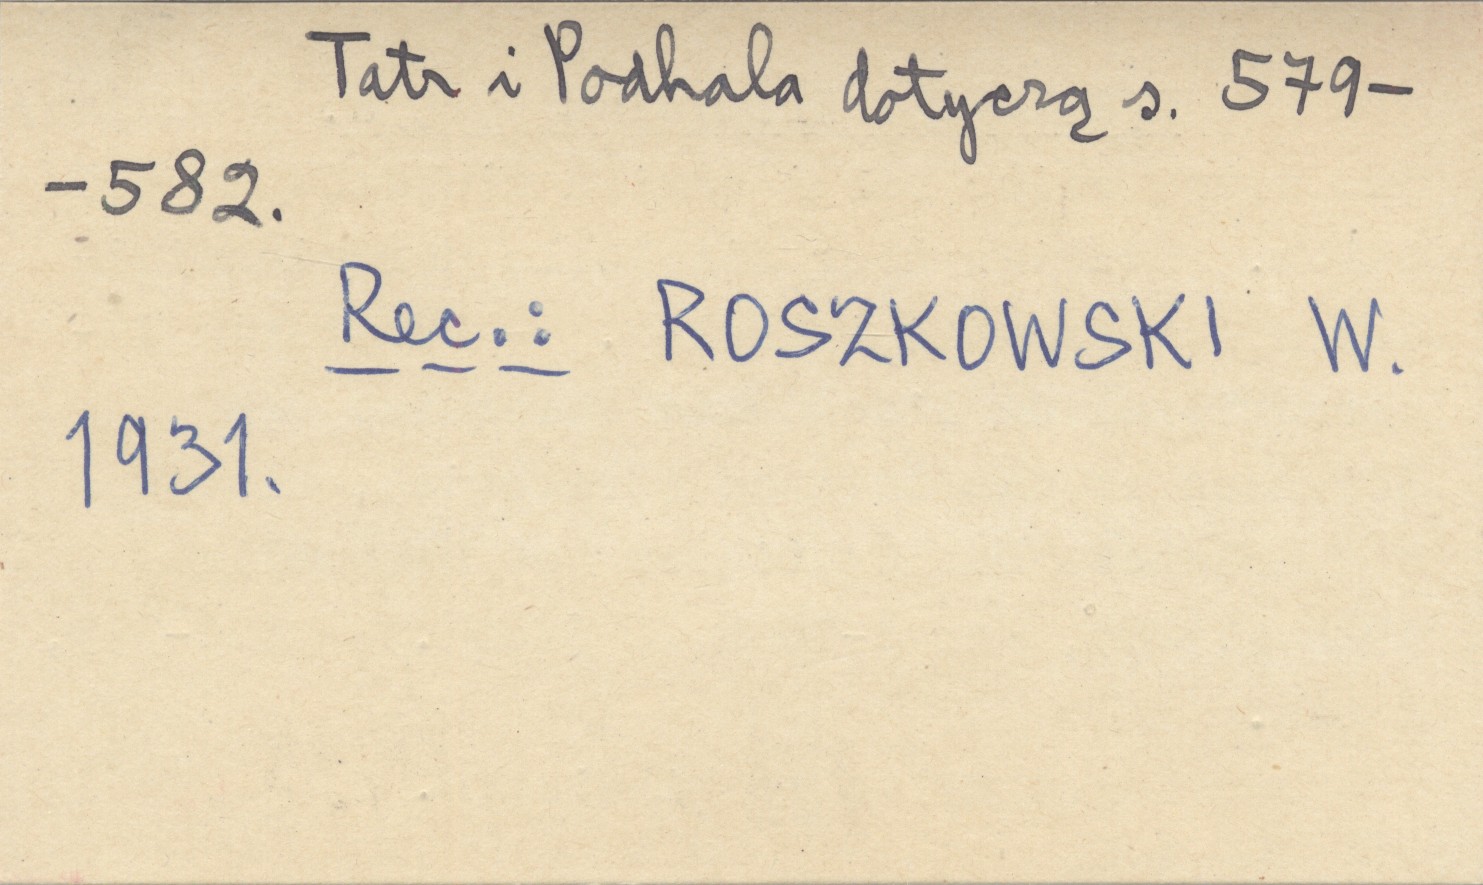 Tatr i Podhala dotyczą s. 579-
-582.
Rec.: ROSZKOWSKI W.
1931.